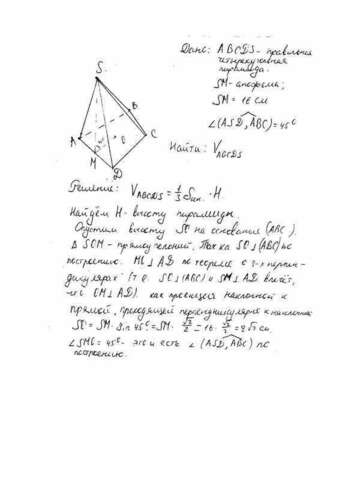 Дано: ABCDS - правильная
четырёхугольная
пирамида.
SM - апофема;
SM = 16 см
∠(ASD, ABC) = 45°
Найти: V_ABCDS
S
B
A
O
C
M
D
Решение: V_ABCDS = 1/3 Sосн. · H.
Найдём H - высоту пирамиды.
Опустим высоту SO на основание (ABC).
Δ SOM - прямоугольный. Так ка SO⊥(ABC) по
построению. MO⊥AD по теореме о 3-х перпен-
дикулярах (т.е. SO⊥(ABC) и SM⊥AD
OM⊥AD). как проекция наклонной к
прямой, проходящей перпендикулярно к наклонной
SO = SM · Sin 45° = SM · √2/2 = 16 · √2/2 = 8√2 см.
∠SMO = 45° - это и есть ∠(ASD, ABC) по
построению.